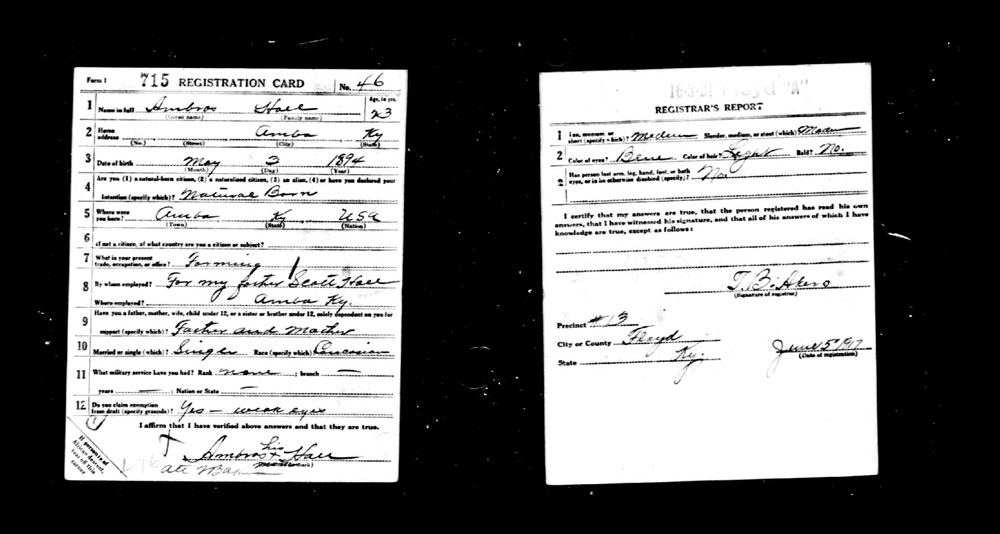 Form 1 715 REGISTRATION CARD No. 46
1 Name in full Ambros Hall Age, in yrs. 23
(Given name) (Family name)
2 Home address Amba Ky
(No.) (Street) (City) (State)
3 Date of birth May 3 1894
(Month) (Day) (Year)
4 Are you (1) a natural-born citizen, (2) a naturalized citizen, (3) an alien, (4) or have you declared your
intention (specify which)? Natural Born
5 Where were you born? Amba Ky USA
(Town) (State) (Nation)
6 If not a citizen, of what country are you a citizen or subject?
7 What is your present trade, occupation, or office? Farming
8 By whom employed? For my father Scott Hall
Where employed? Amba Ky.
9 Have you a father, mother, wife, child under 12, or a sister or brother under 12, solely dependent on you for
support (specify which)? Father and Mother
10 Married or single (which)? Single Race (specify which)? Caucasian
11 What military service have you had? Rank none ; branch —
years — ; Nation or State —
12 Do you claim exemption from draft (specify grounds)? Yes - weak eyes
I affirm that I have verified above answers and that they are true.
Ambros his x Hall
mark)
If person is of
African descent,
tear off this
corner
16-3-21 Floyd "A"
REGISTRAR'S REPORT
1 Tall, medium, or short (specify which)? Medium Slender, medium, or stout (which)? Medium
2 Color of eyes? Blue Color of hair? Light Bald? No.
3 Has person lost arm, leg, hand, foot, or both
eyes, or is he otherwise disabled (specify)? No
I certify that my answers are true, that the person registered has read his own
answers, that I have witnessed his signature, and that all of his answers of which I have
knowledge are true, except as follows:
T. B. Akers
(Signature of registrar)
Precinct #13
City or County Floyd
State Ky.
June 5" 1917
(Date of registration)